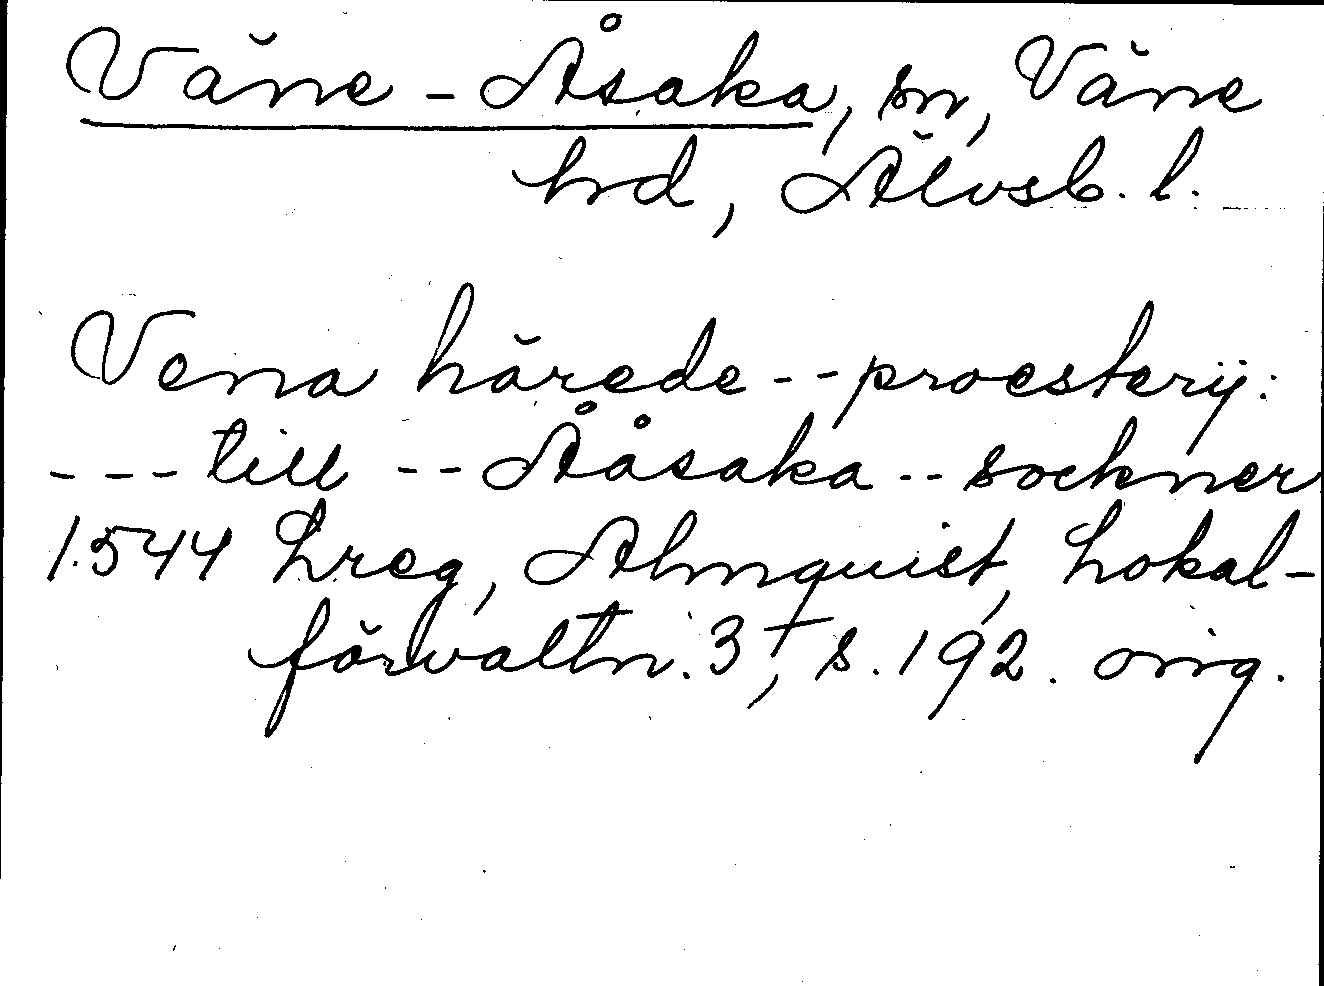 Väne-Åsaka, sn, Väne
hd, Älvsb. l.
Vena härede -- proesterij:
--- till -- Ååsaka -- sockner
1544 Lreg, Almquist, Lokal-
förvaltn. 3, s. 192. orig.